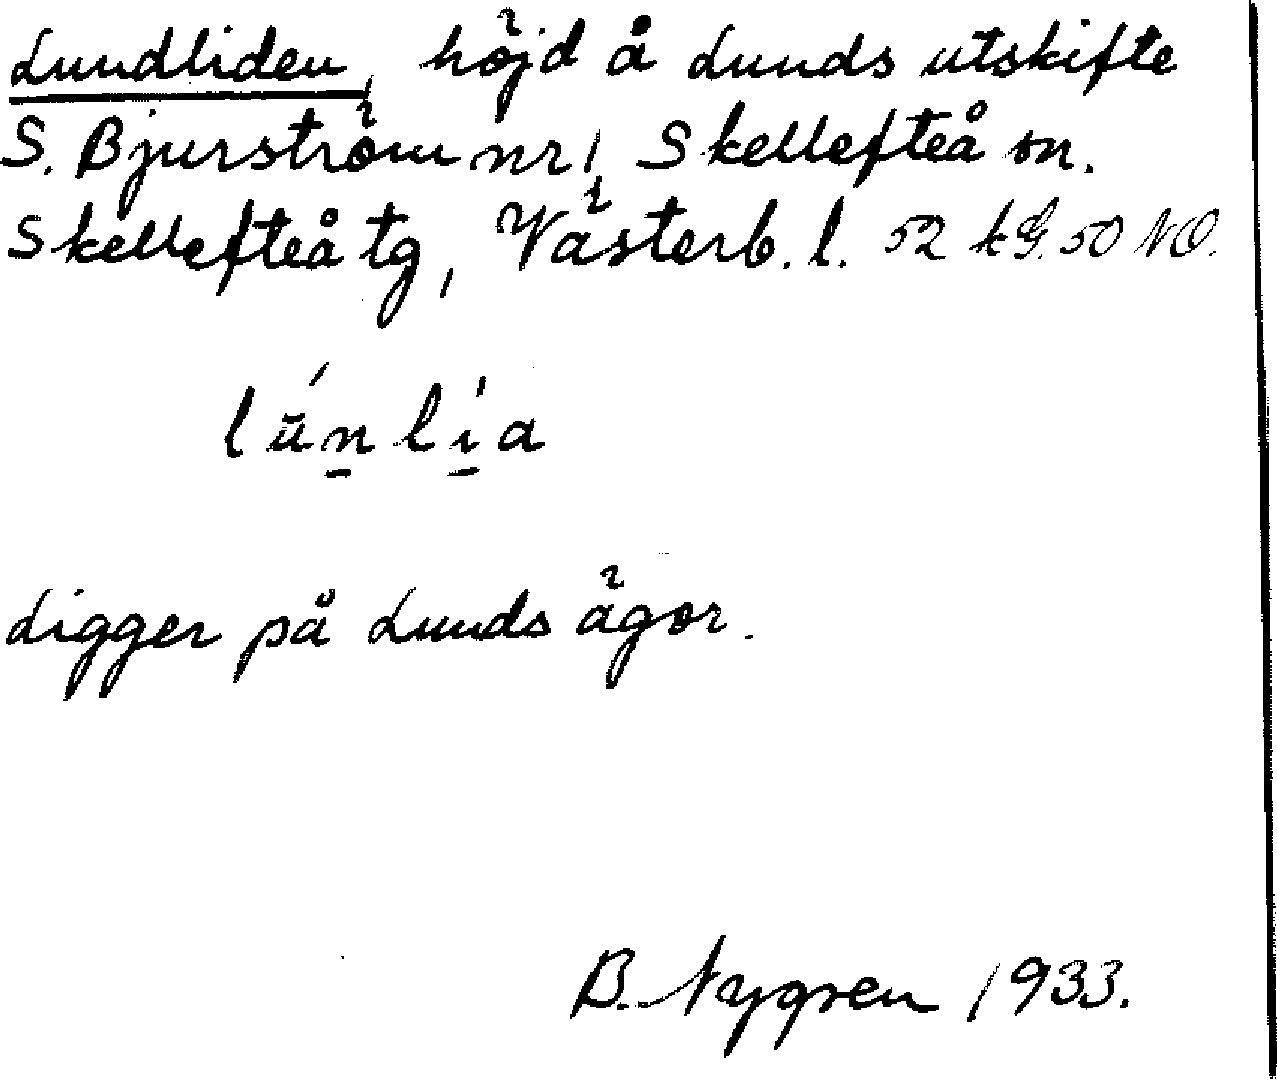 Lundliden, höjd å Lunds utskifte
S. Bjurström nr 1, Skellefteå sn.
Skellefteå tg, Västerb. l. 52 kG. 50 NO.
lúnlía
Ligger på Lunds ägor.
B. Nygren 1933.